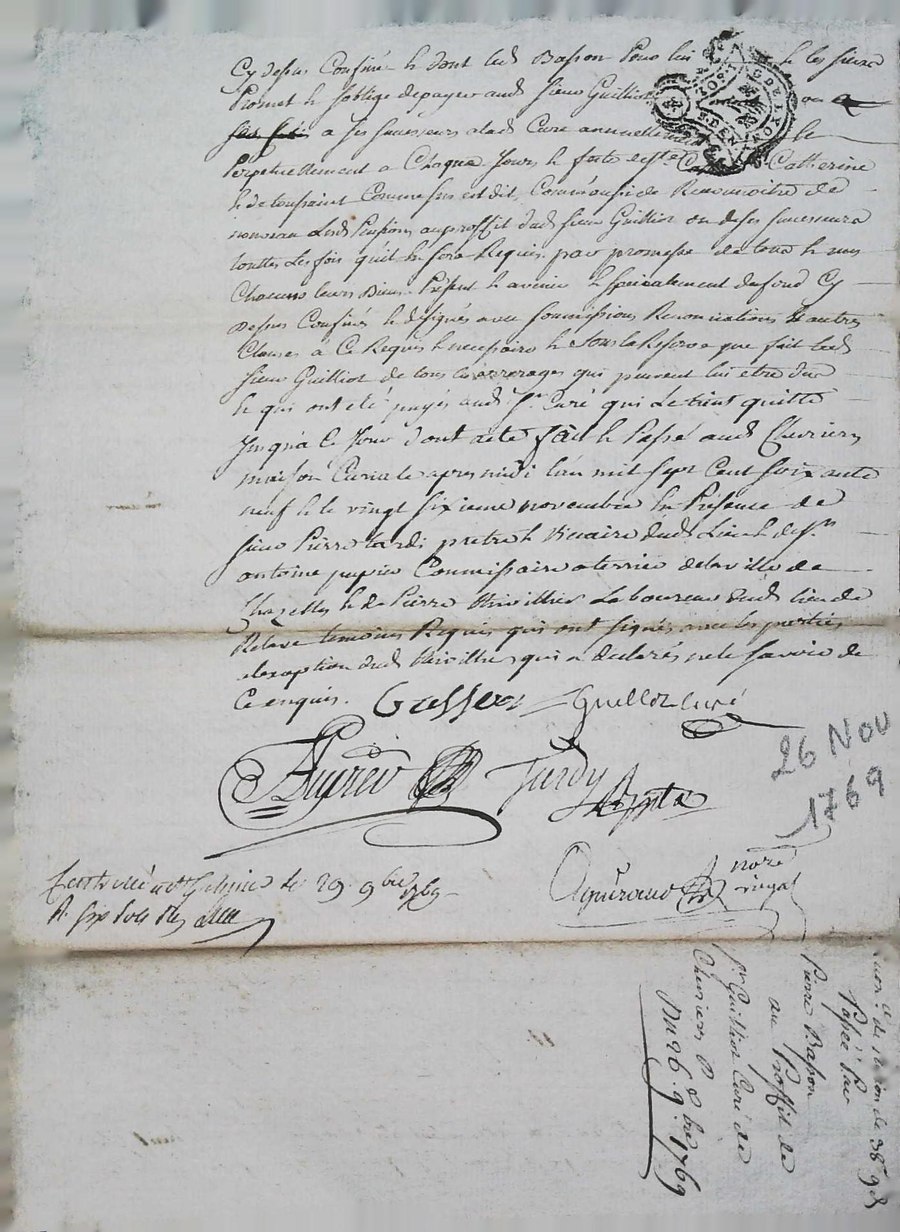 Cy dessus Confiné & dont led Basson Pour lui & les siens
Promet & soblige de payer aud sieur Guilliot ou a
a ses successeurs alad Cure annuellement &
Perpetuellement a Chaque Jours & feste de ste Catherine
& de toussaint Comme sus est dit, Comm'aussi de Reconnoitre de
nouveau Lesd Pensions au proffit dud sieur Guilliot ou de ses successeurs
touttes Les fois qu'il En sera Requis, par promesse de tous & uns
Chacuns leurs Biens Présent & avenir & spécialement du fond Cy
dessus Confinés & désignés avec soumissions Renonciations & autres
Clauses à Ce Requis & necessaire & sous la Reserve que fait led
sieur Guilliot de tous les arrerages qui peuvent lui etre dus
& qui ont été payés aud Sr. Curé qui Le tient quitte
Jusqu'a Ce Jour dont acte fait & Passé aud Chevrieres
maison Curiale apres midi l'an mil sept Cent soixante
neuf & le vingt sixieme novembre En Présence de
sieur Pierre tardi pretre & Vicaire dud Lieu & de Sr.
antoine pupier Commissaire a terrier de la ville de
Chazelles & de Pierre thivillier Laboureur dud lieu de
temoins Requis qui ont signés avec les parties
a Lexception dud thivillier qui a declarés ne le savoir de
Ce enquis. Guilliot curé
Tardy
26 Nov
1769
nore
royal
le 29 9bre 1769
R. six sols six
de 38s 9d
Passée Par
Pierre Basson
au Proffit de
Sr Guilliot Curé de
Chevrieres
Du 26 9bre 1769